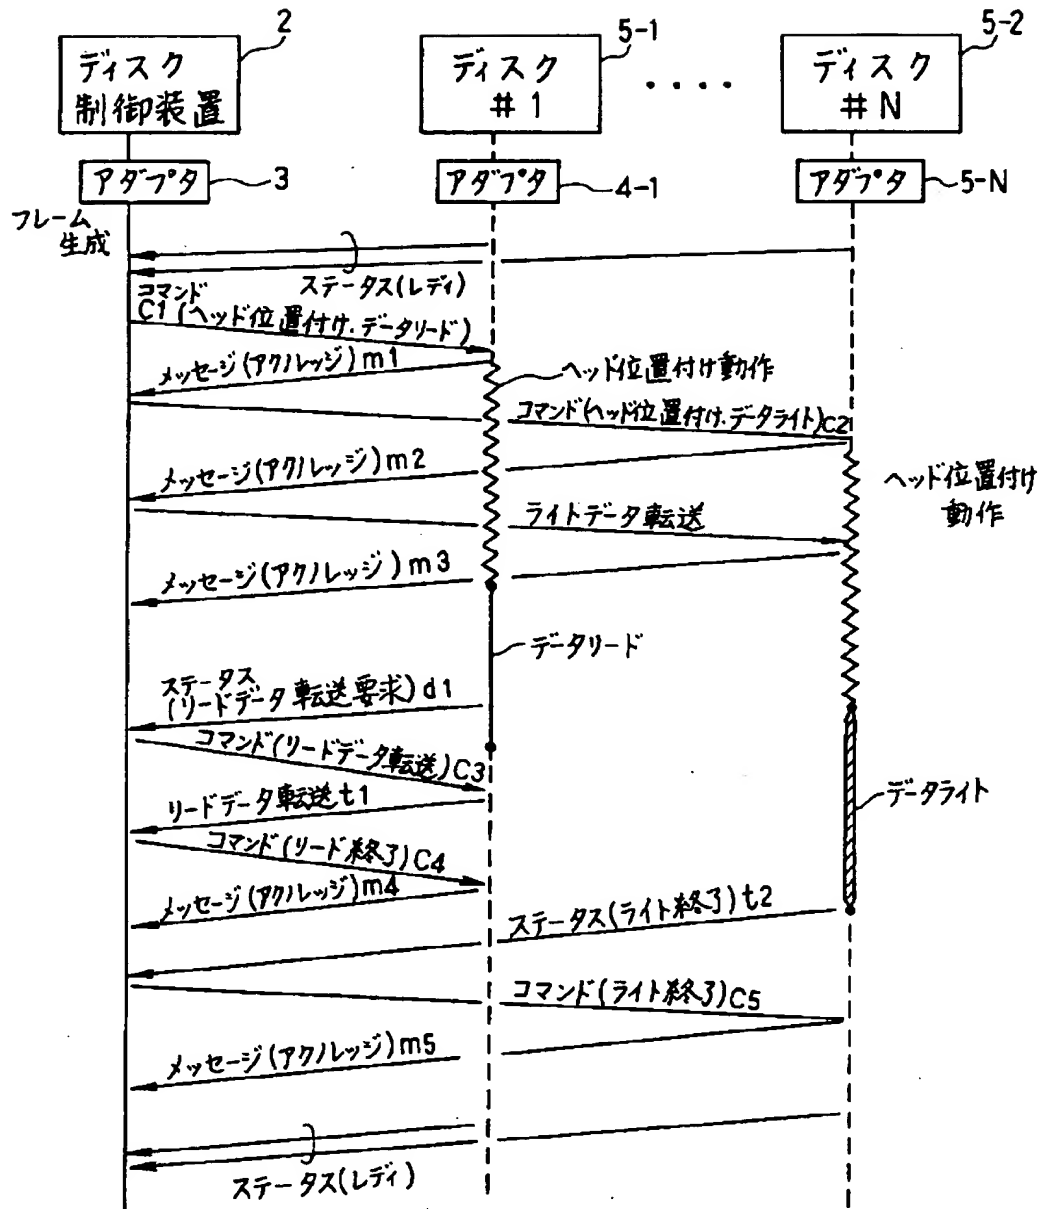 2
ディスク
制御装置
5-1
ディスク
#1
....
5-2
ディスク
#N
アダプタ
3
アダプタ
4-1
アダプタ
5-N
フレーム
生成
ステータス(レディ)
コマンド
C1(ヘッド位置付け.データリード)
メッセージ(アクノレッジ)m1
ヘッド位置付け動作
コマンド(ヘッド位置付け.データライト)C2
メッセージ(アクノレッジ)m2
ヘッド位置付け
動作
ライトデータ転送
メッセージ(アクノレッジ)m3
データリード
ステータス
(リードデータ転送要求)d1
コマンド(リードデータ転送)C3
リードデータ転送t1
データライト
コマンド(リード終了)C4
メッセージ(アクノレッジ)m4
ステータス(ライト終了)t2
コマンド(ライト終了)C5
メッセージ(アクノレッジ)m5
ステータス(レディ)